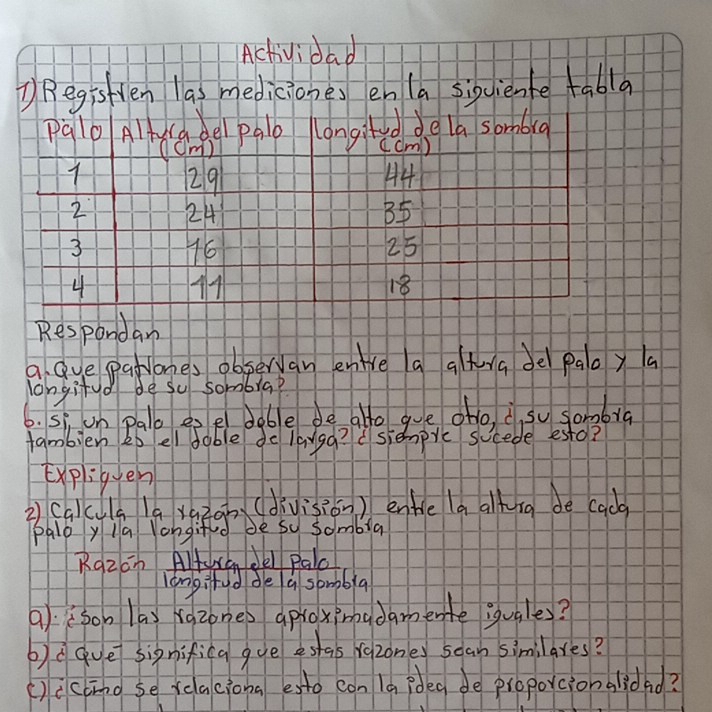 Actividad
1) Registren las mediciones en la siguiente tabla
Palo Altura del palo (cm) longitud de la sombra (cm)
1 29 44
2 24 35
3 16 25
4 11 18
Respondan
a. Que patrones observan entre la altura del palo y la
longitud de su sombra?
b. si un palo es el doble de alto que otro, ¿ su sombra
tambien es el doble de larga? ¿ siempre sucede esto?
Expliquen
2) Calcula la razón (división) entre la altura de cada
palo y la longitud de su sombra
Razón Altura del palo
longitud de la sombra
a) ¿son las razones aproximadamente iguales?
b) ¿ qué significa que estas razones sean similares?
c) ¿cómo se relaciona esto con la idea de proporcionalidad?